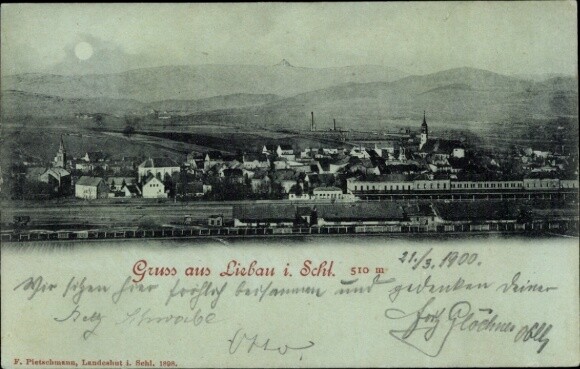 Gruss aus Liebau i. Schl. 510 m
21./3. 1900.
Wir sitzen hier fröhlich beisammen und gedenken deiner
Schwabe
Glöckner
Otto.
F. Pietschmann, Landeshut i. Schl. 1898.